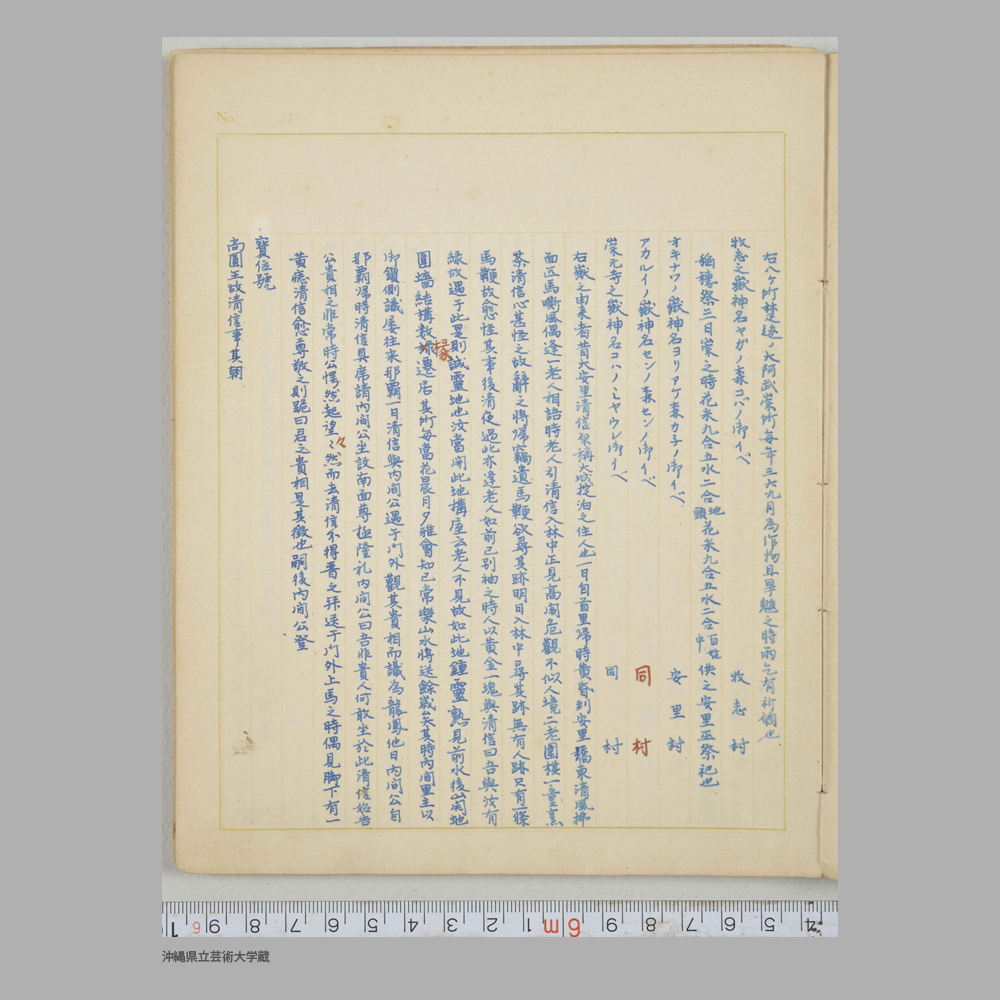 No.
右八ケ所楚辺ノ大阿武崇所毎年三六九月為作物且旱魃之時雨乞有祈願也
牧志之嶽神名ヤガノ森コバノ御イベ 牧志村
稲穂祭三日崇之時花米九合五水二合地頭花米九合五水二合百姓中供之安里巫祭祀也
オキナワノ嶽神名ヨリアゲ森カ子ノ御イベ 安里村
アカルイノ嶽神名センノ森センノ御イベ 同村
崇元寺之嶽神名コハノミヤウレ御イベ 同村
右嶽之由来者昔大安里清信桀称大城掟泊之住人也一日自首里帰時黄昏到安里橋東清風拂
面匹馬嘶風偶逢一老人相語時老人引清信入林中正見高閣危觀不似人境二老圍棋一童烹
茶清信心甚怪之故辭之将帰竊遺馬鞭欲尋其跡明日入林中尋其跡無有人跡只有一條
馬鞭故愈怪其事後清夜過此亦逢老人如前已別袖之時人以黄金一塊與清信曰吾與汝有
縁故遇于此是則誠靈地也汝當開此地構屋云老人不見故如此地鍾靈熟見前水後山開地
圍墻結構数椽遷居其所毎當花晨月夕雅會知己常樂山水将送餘歳矣其時内間里主以
御鎖側識屡往来那覇一日清信與内間公遇于门外觀其貴相而議為龍鳳他日内間公自
那覇帰時清信具席請内間公坐設南面尊極隆礼内間公曰吾非貴人何敢坐於此清信始告
公貴相之非常時公愕然起望々然而去清信不得畨之拜送于门外上馬之時偶見脚下有一
黄痣清信愈尊敬之則跪曰君之貴相是其徴也嗣後内间公登
寶位號
尚圓王故清信事其朝
沖縄県立芸術大学蔵